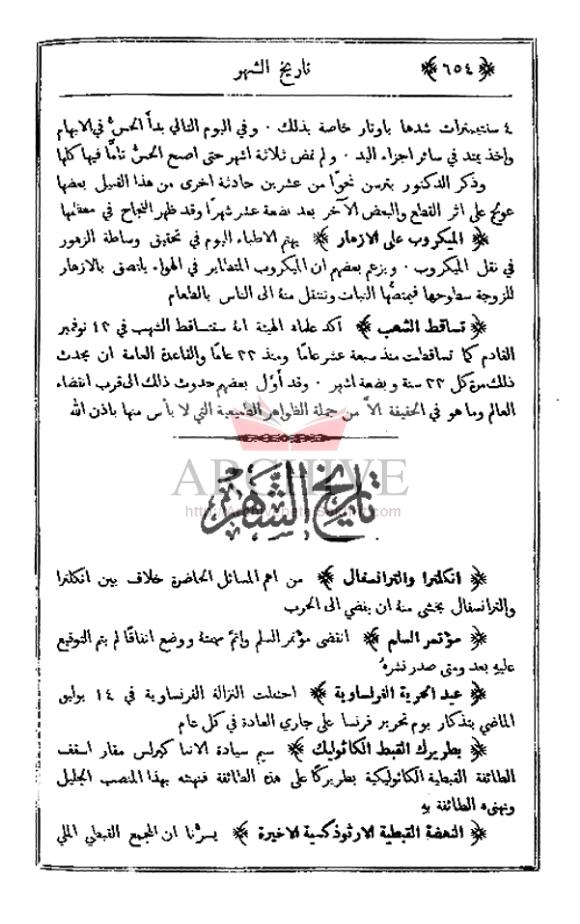 ﴿ ٦٥٤ ﴾ تاريخ الشهر
٤ سنتيمترات شدها باوتار خاصة بذلك . وفي اليوم التالي بدأ الحسُّ في الابهام
واخذ يمتد في سائر اجزاء اليد . ولم تمض ثلاثة اشهر حتى اصبح الحسُّ تامًّا فيها كلها
وذكر الدكتور بترسن نحوًا من عشرين حادثة اخرى من هذا القبيل بعضها
عولج على اثر القطع والبعض الآخر بعد بضعة عشر شهرًا وقد ظهر النجاح في معظمها
﴿ الميكروب على الازهار ﴾ يهتم الاطباء اليوم في تحقيق وساطة الزهور
في نقل الميكروب . ويزعم بعضهم ان الميكروب المتطاير في الهواء يلتصق بالازهار
للزوجة سطوحها فيمتصُّها النبات وتنتقل منهُ الى الناس بالطعام
﴿ تساقط الشهب ﴾ اكد علماء الهيئة انهُ ستتساقط الشهب في ١٢ نوفمبر
القادم كما تساقطت منذ سبعة عشر عامًا ومنذ ٣٣ عامًا والقاعدة العامة ان يحدث
ذلك مرة كل ٣٣ سنة وبضعة اشهر . وقد أوَّل بعضهم حدوث ذلك الى قرب انقضاء
العالم وما هو في الحقيقة الاَّ من جملة الظواهر الطبيعية التي لا بأس منها باذن الله
ARCHIVE
تاريخ الشَّهر
﴿ انكلترا والترانسفال ﴾ من اهم المسائل الحاضرة خلاف بين انكلترا
والترانسفال يخشى منهُ ان يفضي الى الحرب
﴿ مؤتمر السلم ﴾ انقضى مؤتمر السلم واتمَّ مهمتهُ ووضع اتفاقًا لم يتم التوقيع
عليهِ بعد ومتى صدر نشرهُ
﴿ عيد الحرية الفرنساوية ﴾ احتفلت النزالة الفرنساوية في ١٤ يوليو
الماضي بتذكار يوم تحرير فرنسا على جاري العادة في كل عام
﴿ بطريرك القبط الكاثوليك ﴾ سيم سيادة الانبا كيرلس مقار اسقف
الطائفة القبطية الكاثوليكية بطريركًا على هذه الطائفة فنهنئه بهذا المنصب الجليل
ونهنىء الطائفة بهِ
﴿ النهضة القبطية الارثوذكسية الاخيرة ﴾ يسرُّنا ان المجمع القبطي الملي